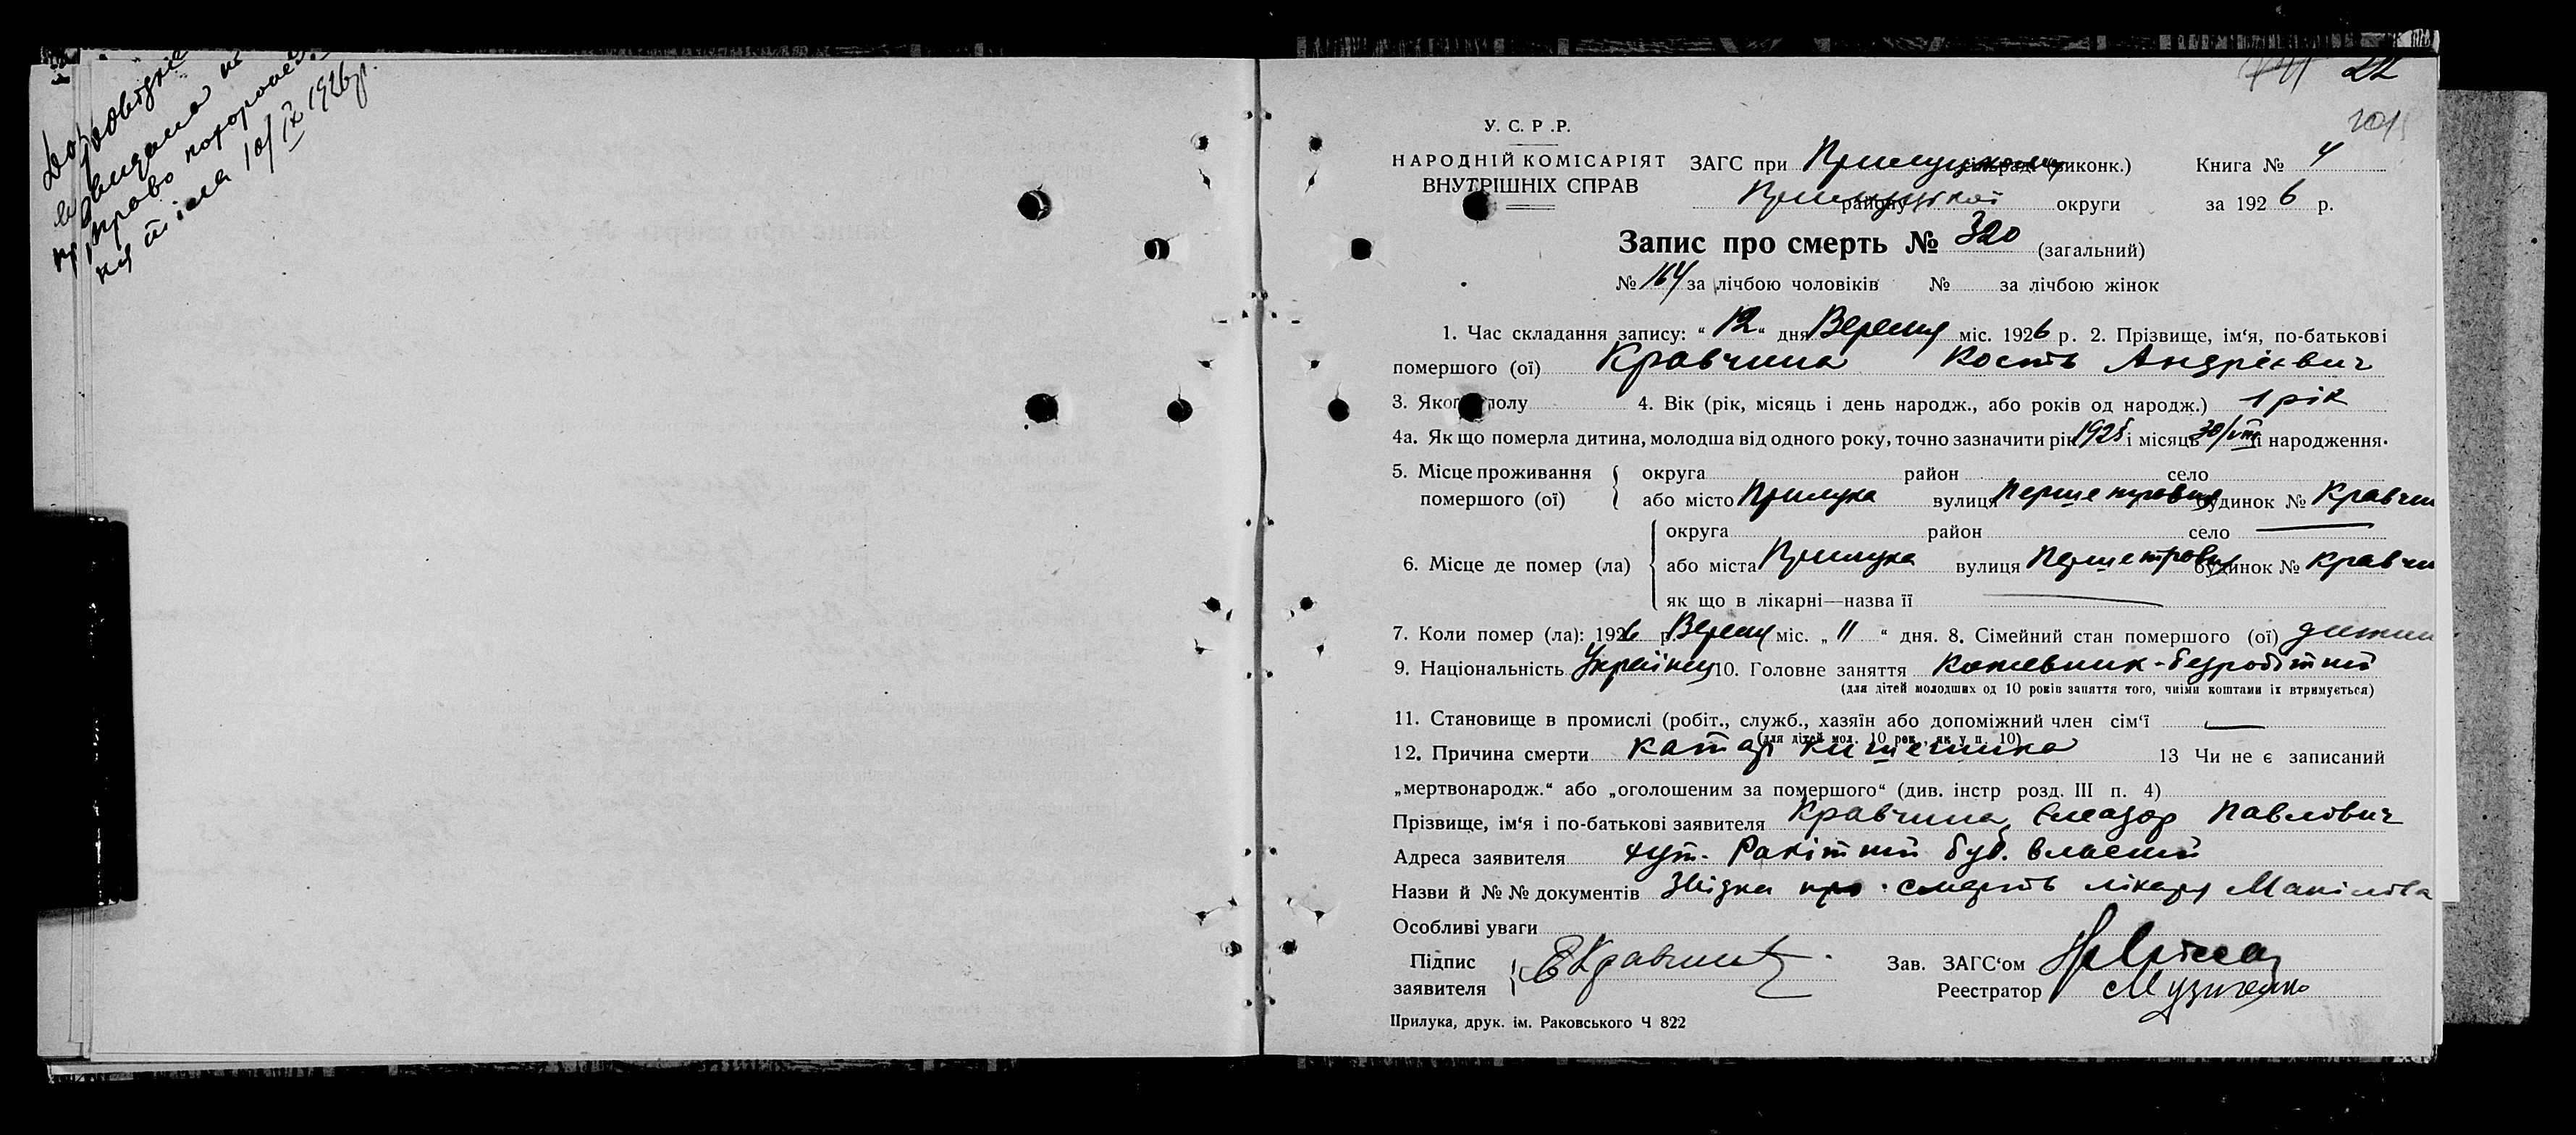 видана на
право похорону
тіла 10/IX 1926 р.
22
У. С. Р .Р.
НАРОДНІЙ КОМІСАРІЯТ
ВНУТРІШНІХ СПРАВ
ЗАГС при Прилуцькому (виконк.) Книга № 4
району Прилуцької округи за 1926 р.
Запис про смерть № 320 (загальний)
№ 164 за лічбою чоловіків № за лічбою жінок
1. Час складання запису: " 12 " дня Вересня міс. 1926 р. 2. Прізвище, ім'я, по-батькові
помершого (ої) Кравчина Кость Андрієвич
3. Якого полу 4. Вік (рік, місяць і день народж., або років од народж.) 1 рік
4а. Як що померла дитина, молодша від одного року, точно зазначити рік 1925 і місяць 30/VIII її народження.
5. Місце проживання помершого (ої) округа район село
або місто Прилука вулиця Першетравня будинок № Кравчин
6. Місце де помер (ла) округа район село —
або міста Прилука вулиця Першетравня будинок № Кравчи
як що в лікарні—назва її —
7. Коли помер (ла): 1926 р. Вересня міс. „ 11 " дня. 8. Сімейний стан помершого (ої) дитин
9. Національність Українец 10. Головне заняття Кожевник-безробітний
(для дітей молодших од 10 років заняття того, чиїми коштами їх втримується)
11. Становище в промислі (робіт., служб., хазяїн або допоміжний член сім'ї —
(для дітей мол. 10 рок., як у п. 10)
12. Причина смерти катар кишечника 13 Чи не є записаний
„мертвонародж." або „оголошеним за помершого" (див. інстр розд. III п. 4)
Прізвище, ім'я і по-батькові заявителя Кравчина Єлеазар Павлович
Адреса заявителя хут. Ракітний буд. власний
Назви й №№ документів Звідка про смерть лікаря Манілова
Особливі уваги
Підпис заявителя ЕКравчина Зав. ЗАГС'ом
Реестратор Музиченко
Прилука, друк. ім. Раковського Ч 822